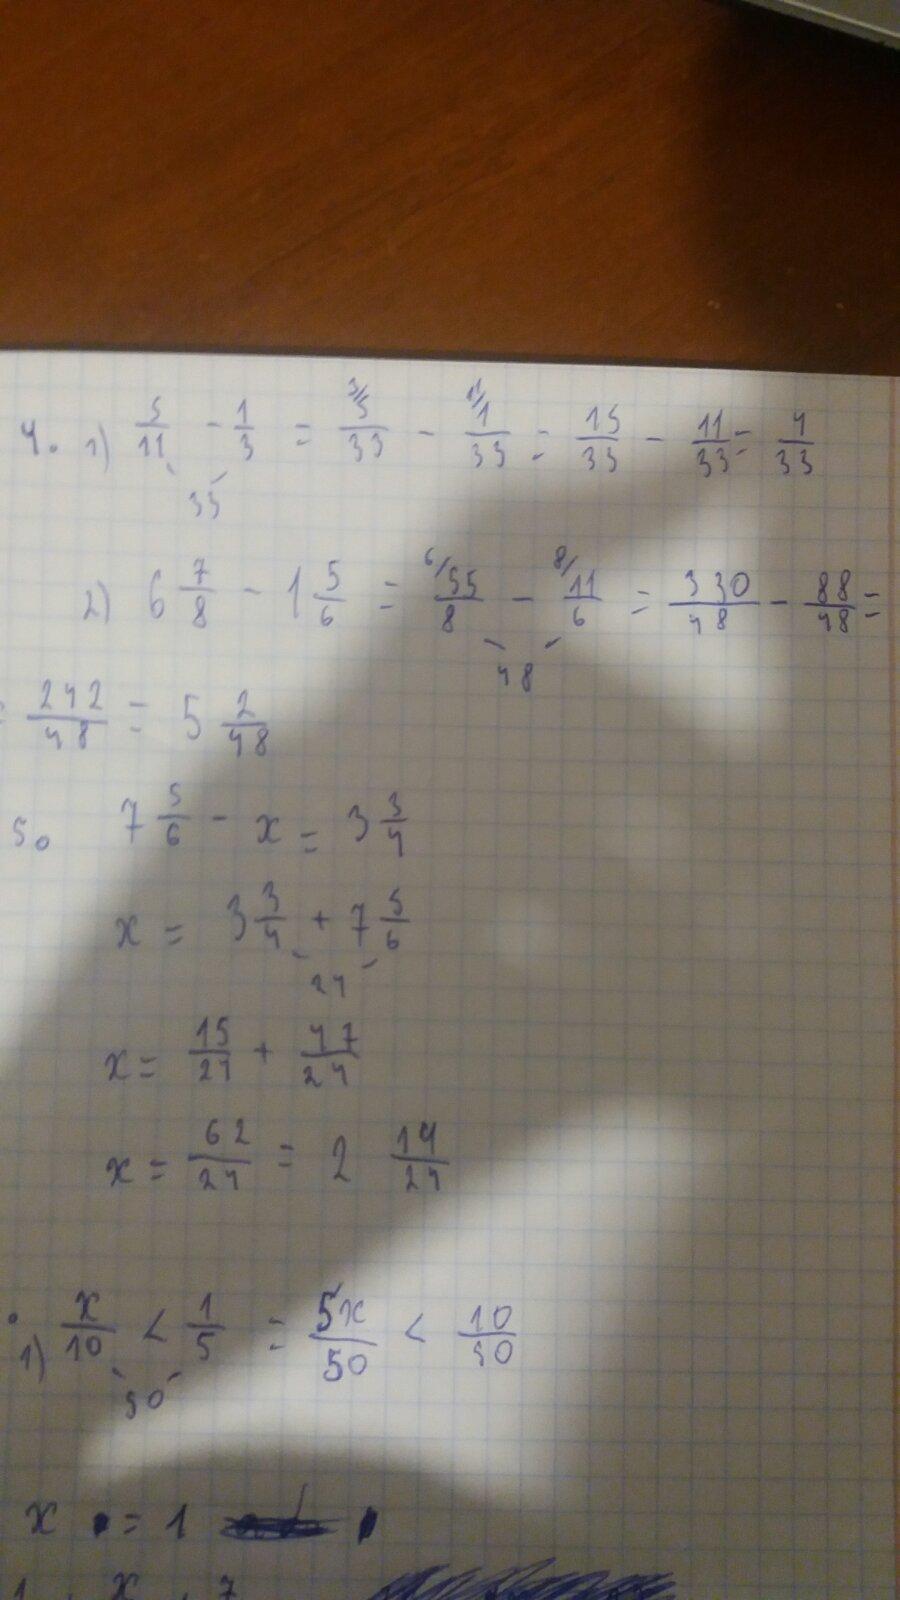 4. 1) 5/11 - 1/3 = 3/ 5/33 - 11/ 1/33 = 15/33 - 11/33 = 4/33
33
2) 6 7/8 - 1 5/6 = 6/ 55/8 - 8/ 11/6 = 330/48 - 88/48 =
48
= 242/48 = 5 2/48
5. 7 5/6 - x = 3 3/4
x = 3 3/4 + 7 5/6
24
x = 15/24 + 47/24
x = 62/24 = 2 14/24
1) x/10 < 1/5 = 5x/50 < 10/50
50
x = 1